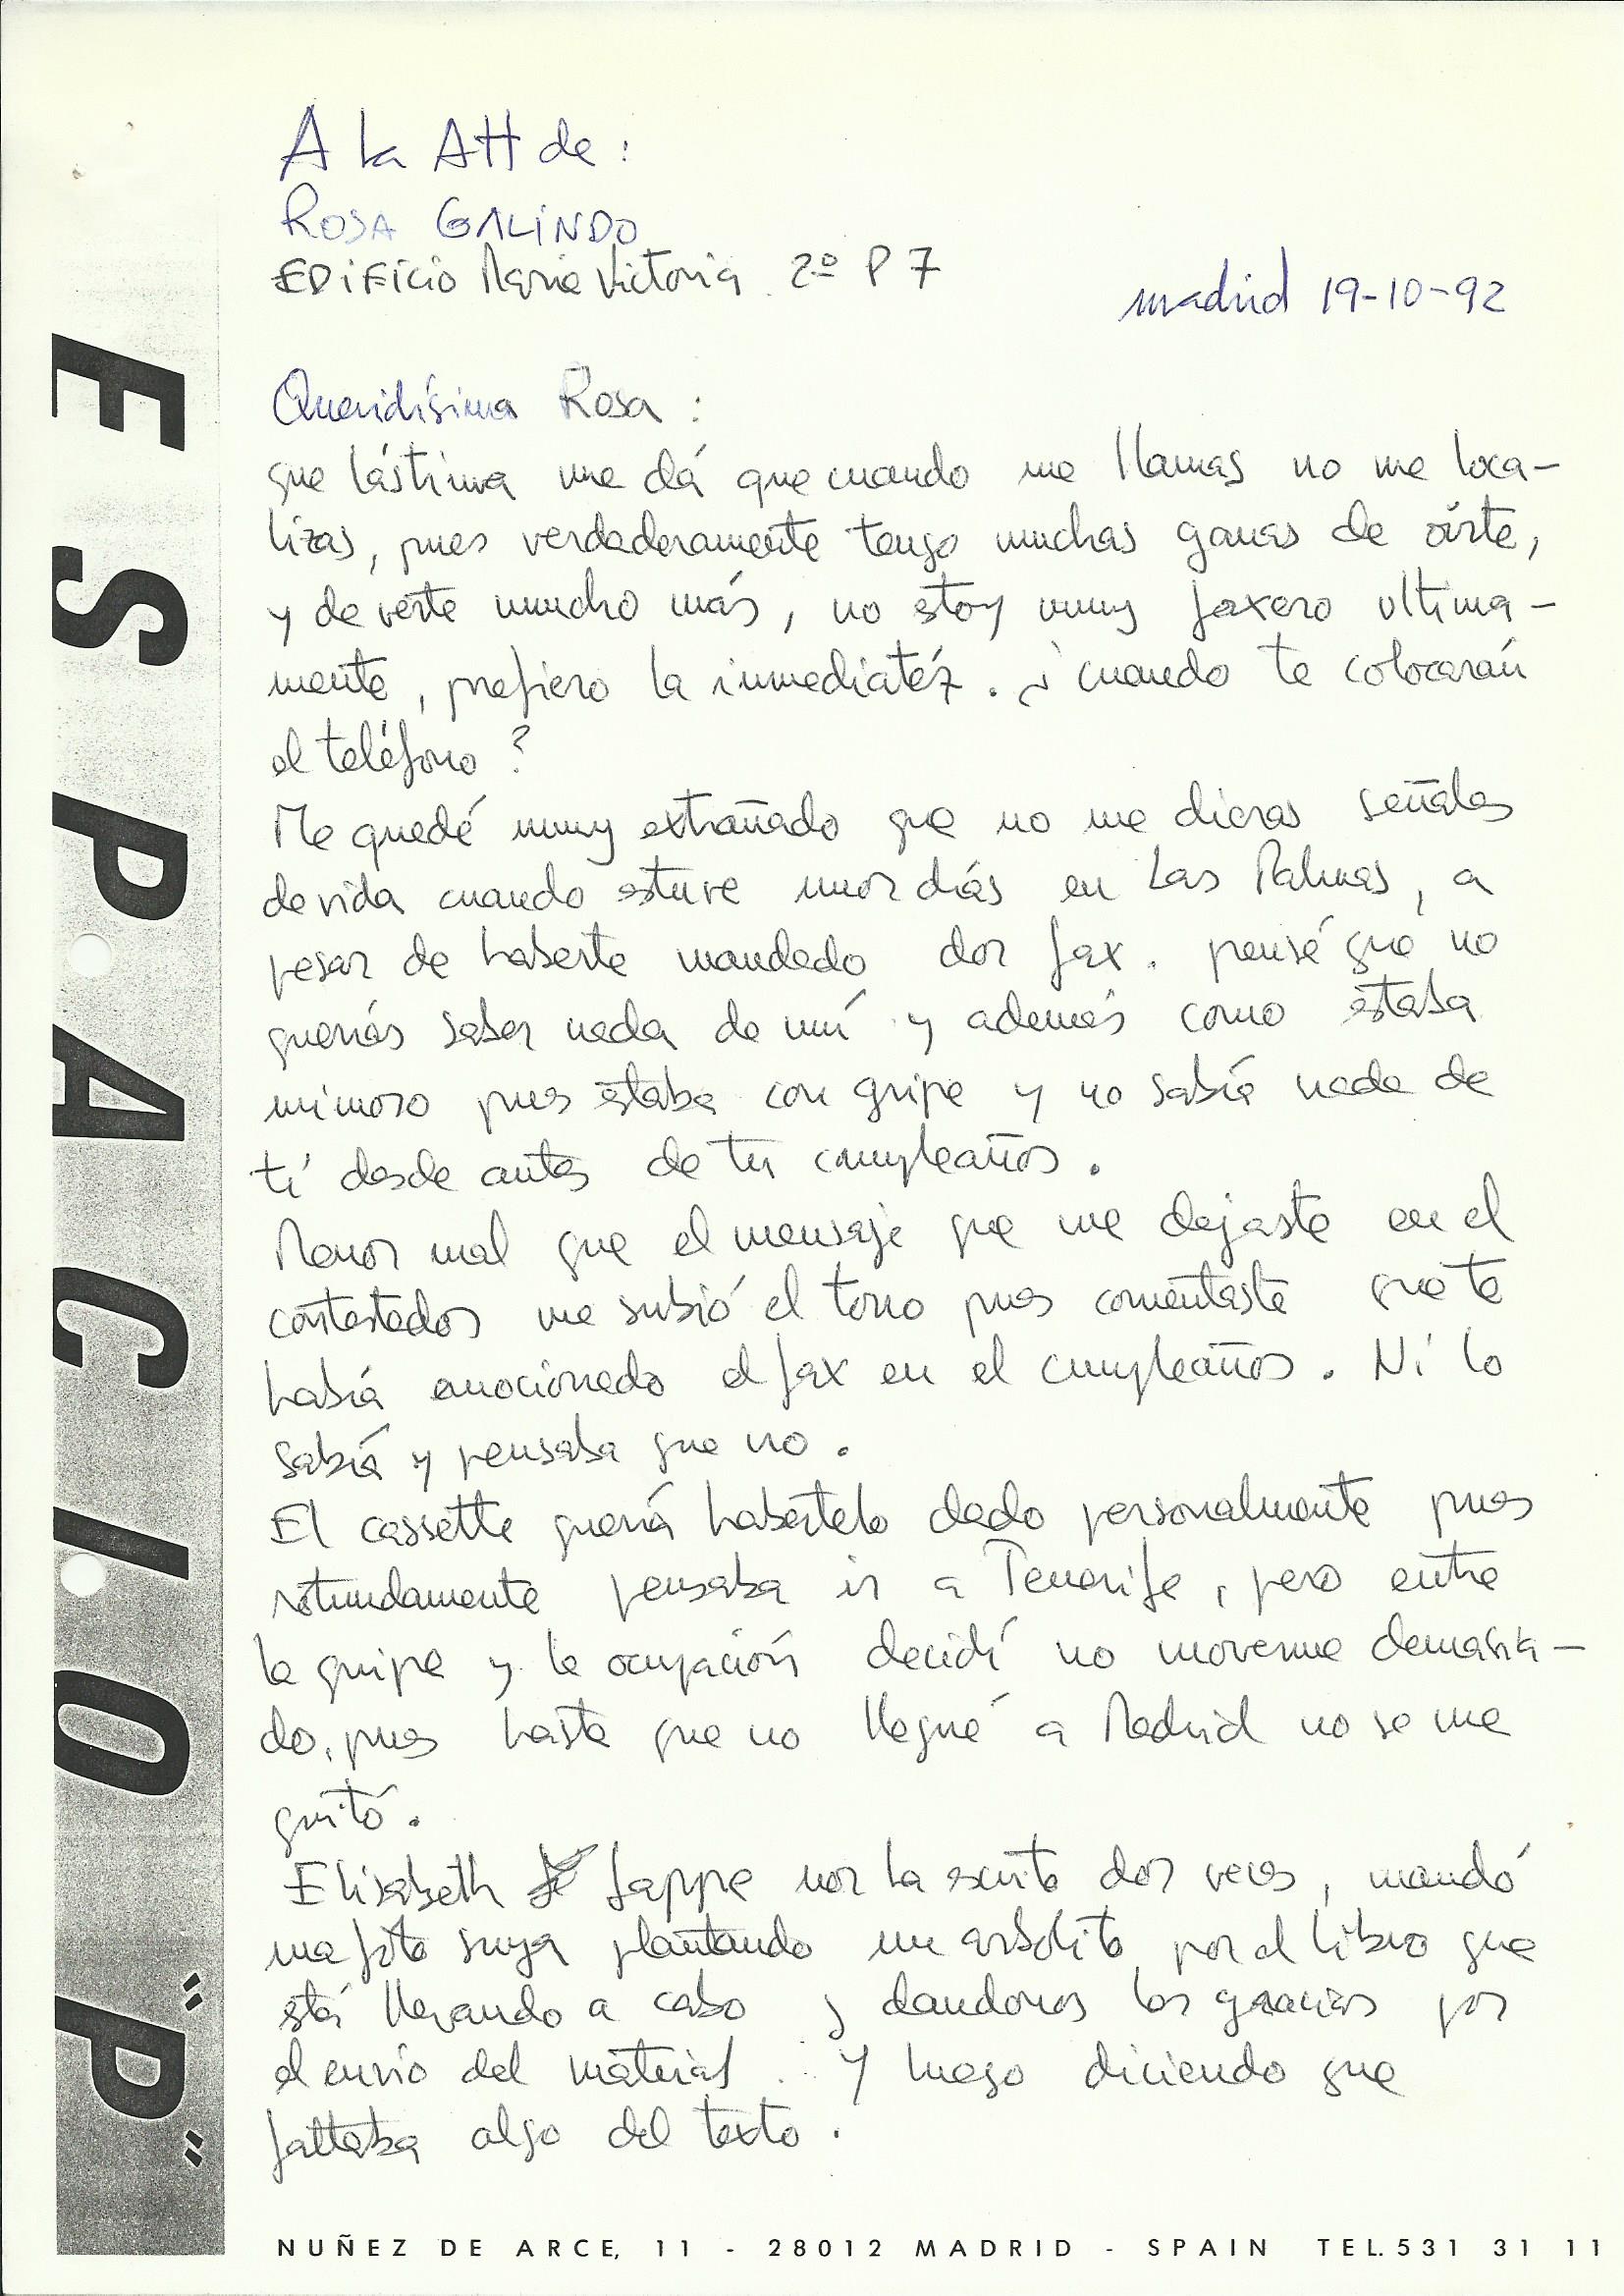 A la Att de :
ROSA GALINDO
EDIFICIO Maria Victoria 2º P 7
madrid 19-10-92
Queridísima Rosa :
que lástima me dá que cuando me llamas no me loca-
lizas, pues verdaderamente tengo muchas ganas de oírte,
y de verte mucho más, no estoy muy faxero ultima-
mente, prefiero la inmediatéz. ¿ cuando te colocarán
el teléfono ?
Me quedé muy extrañado que no me dieras señales
de vida cuando estuve unos días en Las Palmas, a
pesar de haberte mandado dos fax. pensé que no
querías saber nada de mí y además como estaba
mimoso pues estaba con gripe y no sabía nada de
tí desde antes de tu cumpleaños.
Menos mal que el mensaje que me dejaste en el
contestador me subió el tono pues comentaste que te
había emocionado el fax en el cumpleaños. Ni lo
sabía y pensaba que no.
El cassette quería habértelo dado personalmente pues
rotundamente pensaba ir a Tenerife, pero entre
la gripe y la ocupación decidí no moverme demasia-
do, pues hasta que no llegué a Madrid no se me
quitó.
Elisabeth Jappe nos ha escrito dos veces, mandó
una foto suya plantando un arbolito por el libro que
está llevando a cabo y dandonos las gracias por
el envío del material. Y luego diciendo que
faltaba algo del texto.
ESPACIO "P"
NUÑEZ DE ARCE, 11 - 28012 MADRID - SPAIN TEL. 531 31 11